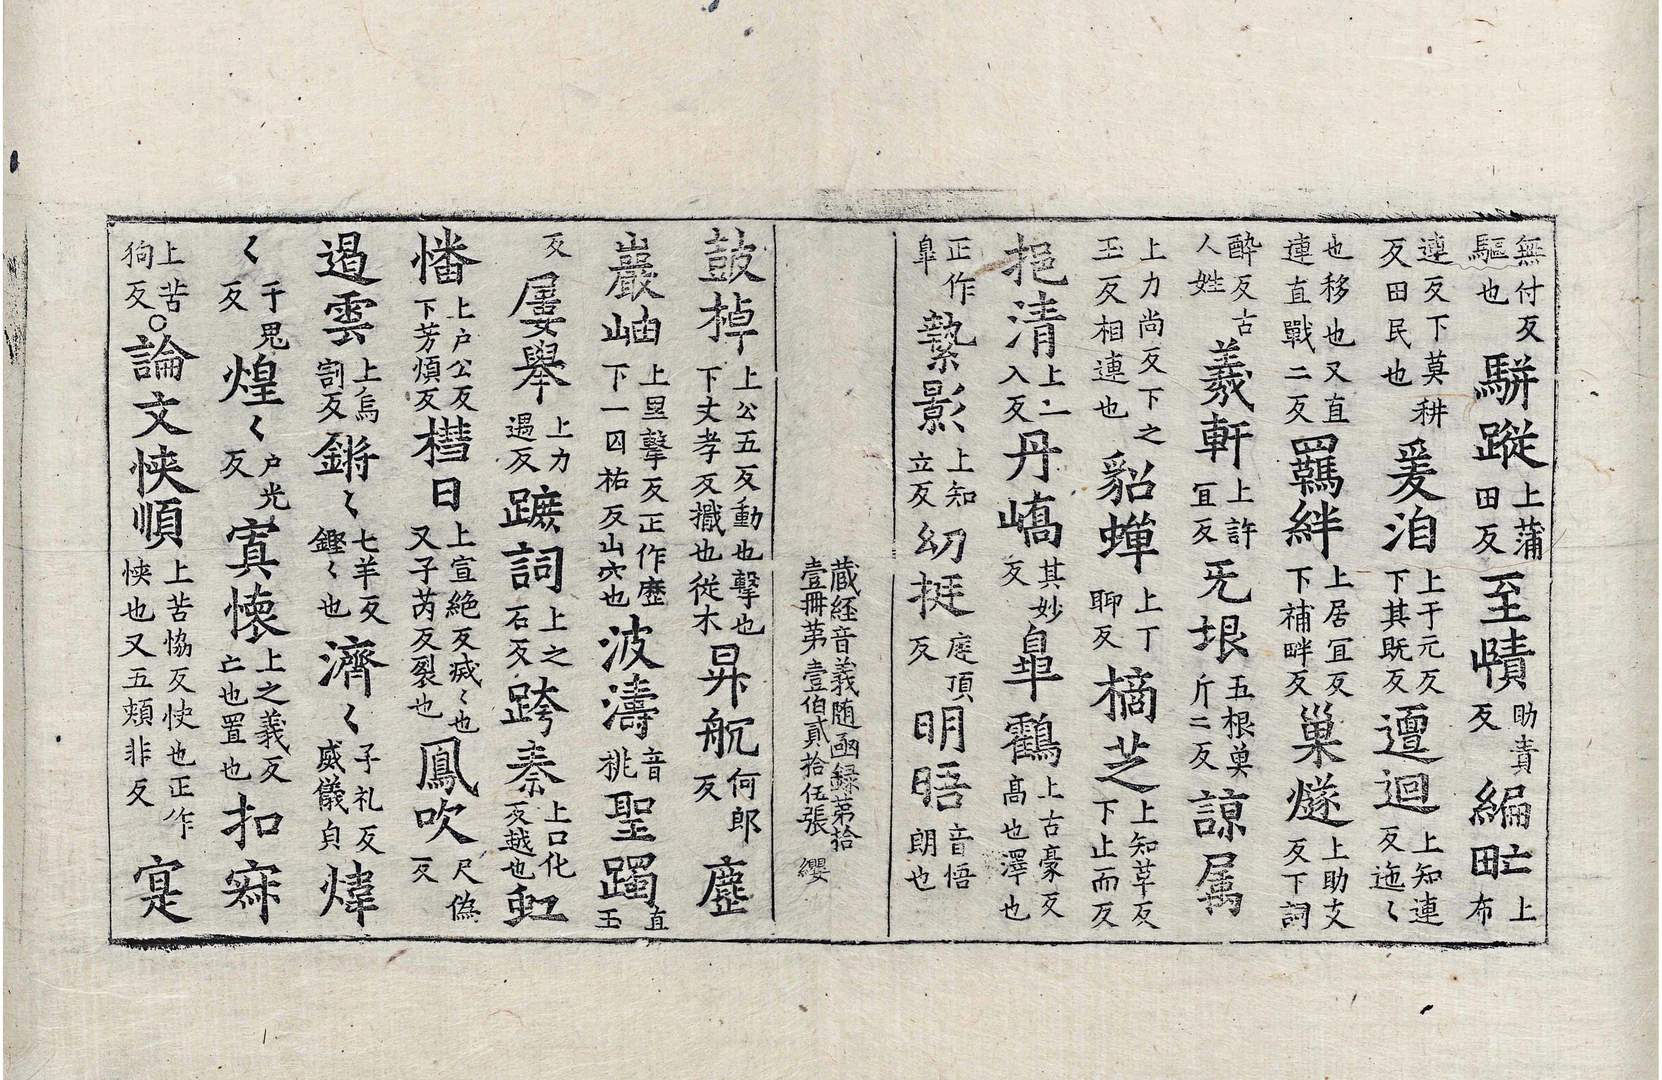 無付反驅也騈蹤上蒲田反至賾助責反編甿上布
連反下莫耕反田民也爰洎上于元反下其既反邅迴上知連反迍〻
也移也又直連直戰二反羈絆上居冝反下補畔反巢燧上助支反下詞
醉反古人姓羲軒上許冝反旡垠五根奠斤二反諒属
上力尚反下之玉反相連也貂蟬上丁聊反摘芝上知草反下止而反
挹清上二入反丹嶠其妙反皐鸖上古豪反高也澤也
正作皐縶影上知立反幼挺庭頂反明晤音悟朗也
蔵経音義随函録第拾壹冊第壹伯貳拾伍張 纓
鼓掉上公五反動也擊也下丈孝反攕也從木昇航何郎反塵
巖岫上里擊反正作歷下一囚祐反山穴也波濤音桃聖躅直玉
反屢舉上力遇反蹠詞上之石反跨秦上口化反越也虹
幡上户公反下芳煩反槥日上宣絶反烕〻也又子芮反裂也鳳吹尺偽反
遏雲上烏割反鏘〻七羊反鏗〻也濟〻子礼反威儀皃煒
〻于鬼反煌〻户光反寘懷上之義反亡也置也扣寂
上苦狗反○論文悏順上苦恊反快也正作悏也又五頰非反寔